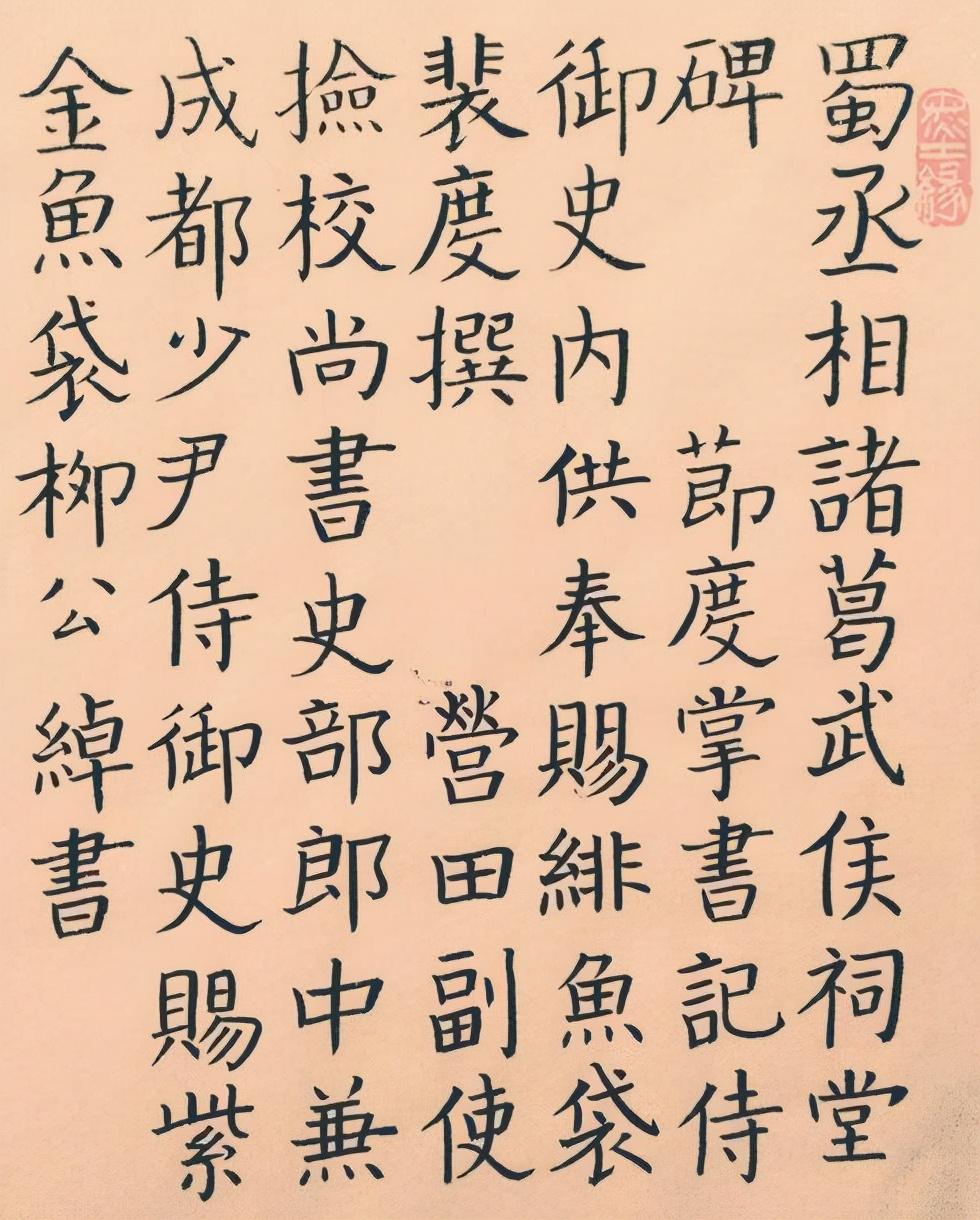 蜀丞相諸葛武侯祠堂
碑 莭度掌書記侍
御史内供奉賜緋魚袋
裴度撰 營田副使
撿校尚書史部郎中兼
成都少尹侍御史賜紫
金魚袋柳公綽書